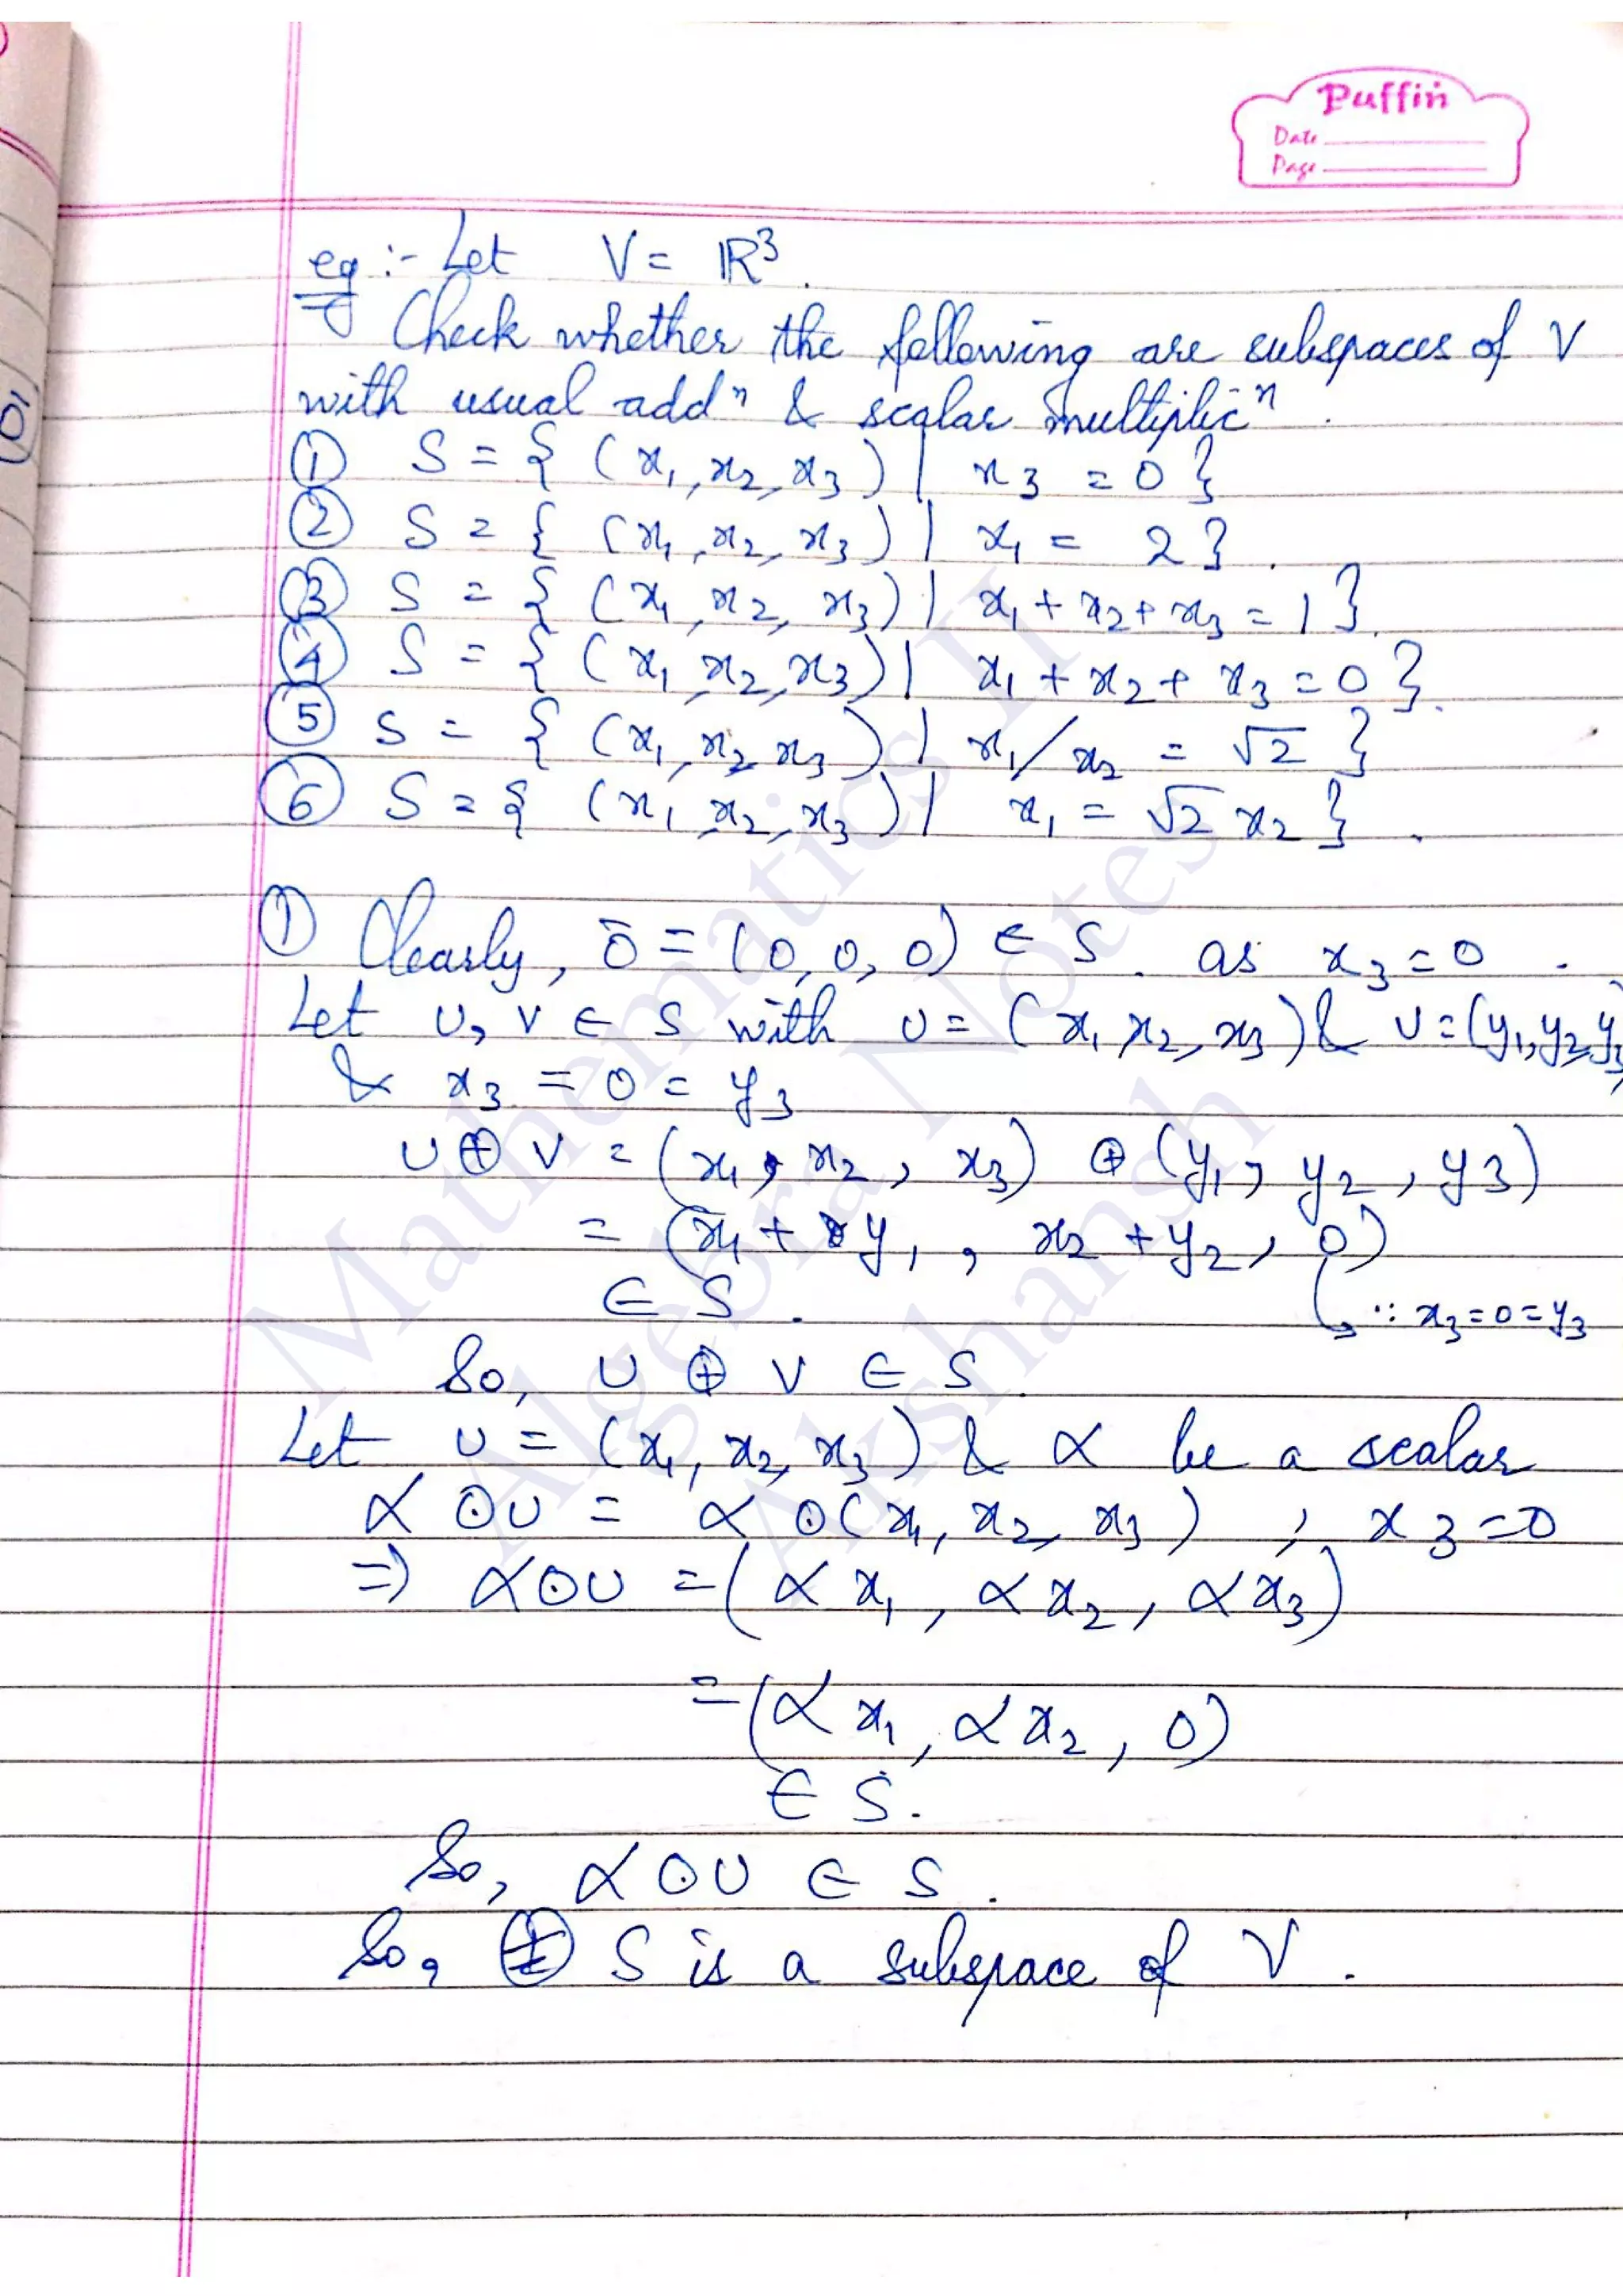 Puffin
Date
Page
eg :- Let V = ℝ³.
Check whether the following are subspaces of V
with usual addⁿ & scalar multiplicⁿ.
① S = { (x₁, x₂, x₃) | x₃ = 0 }
② S = { (x₁, x₂, x₃) | x₁ = 2 }.
③ S = { (x₁, x₂, x₃) | x₁ + x₂ + x₃ = 1 }.
④ S = { (x₁, x₂, x₃) | x₁ + x₂ + x₃ = 0 }.
⑤ S = { (x₁, x₂, x₃) | x₁/x₂ = √2 }
⑥ S = { (x₁, x₂, x₃) | x₁ = √2 x₂ }.
① Clearly, ō = (0, 0, 0) ∈ S. as x₃ = 0.
Let U, V ∈ S with U = (x₁, x₂, x₃) & U = (y₁, y₂, y₃)
& x₃ = 0 = y₃
U ⊕ V = (x₁, x₂, x₃) ⊕ (y₁, y₂, y₃)
= (x₁ + y₁, x₂ + y₂, 0)
∈ S. ↳ ∵ x₃ = 0 = y₃
So, U ⊕ V ∈ S.
Let U = (x₁, x₂, x₃) & α be a scalar
α ⊙ U = α ⊙ (x₁, x₂, x₃) , x₃ = 0
⇒ α ⊙ U = (α x₁, α x₂, α x₃)
= (α x₁, α x₂, 0)
∈ S.
So, α ⊙ U ∈ S.
So, S is a subspace of V.
Mathematics II
Algebra Notes
Akshansh